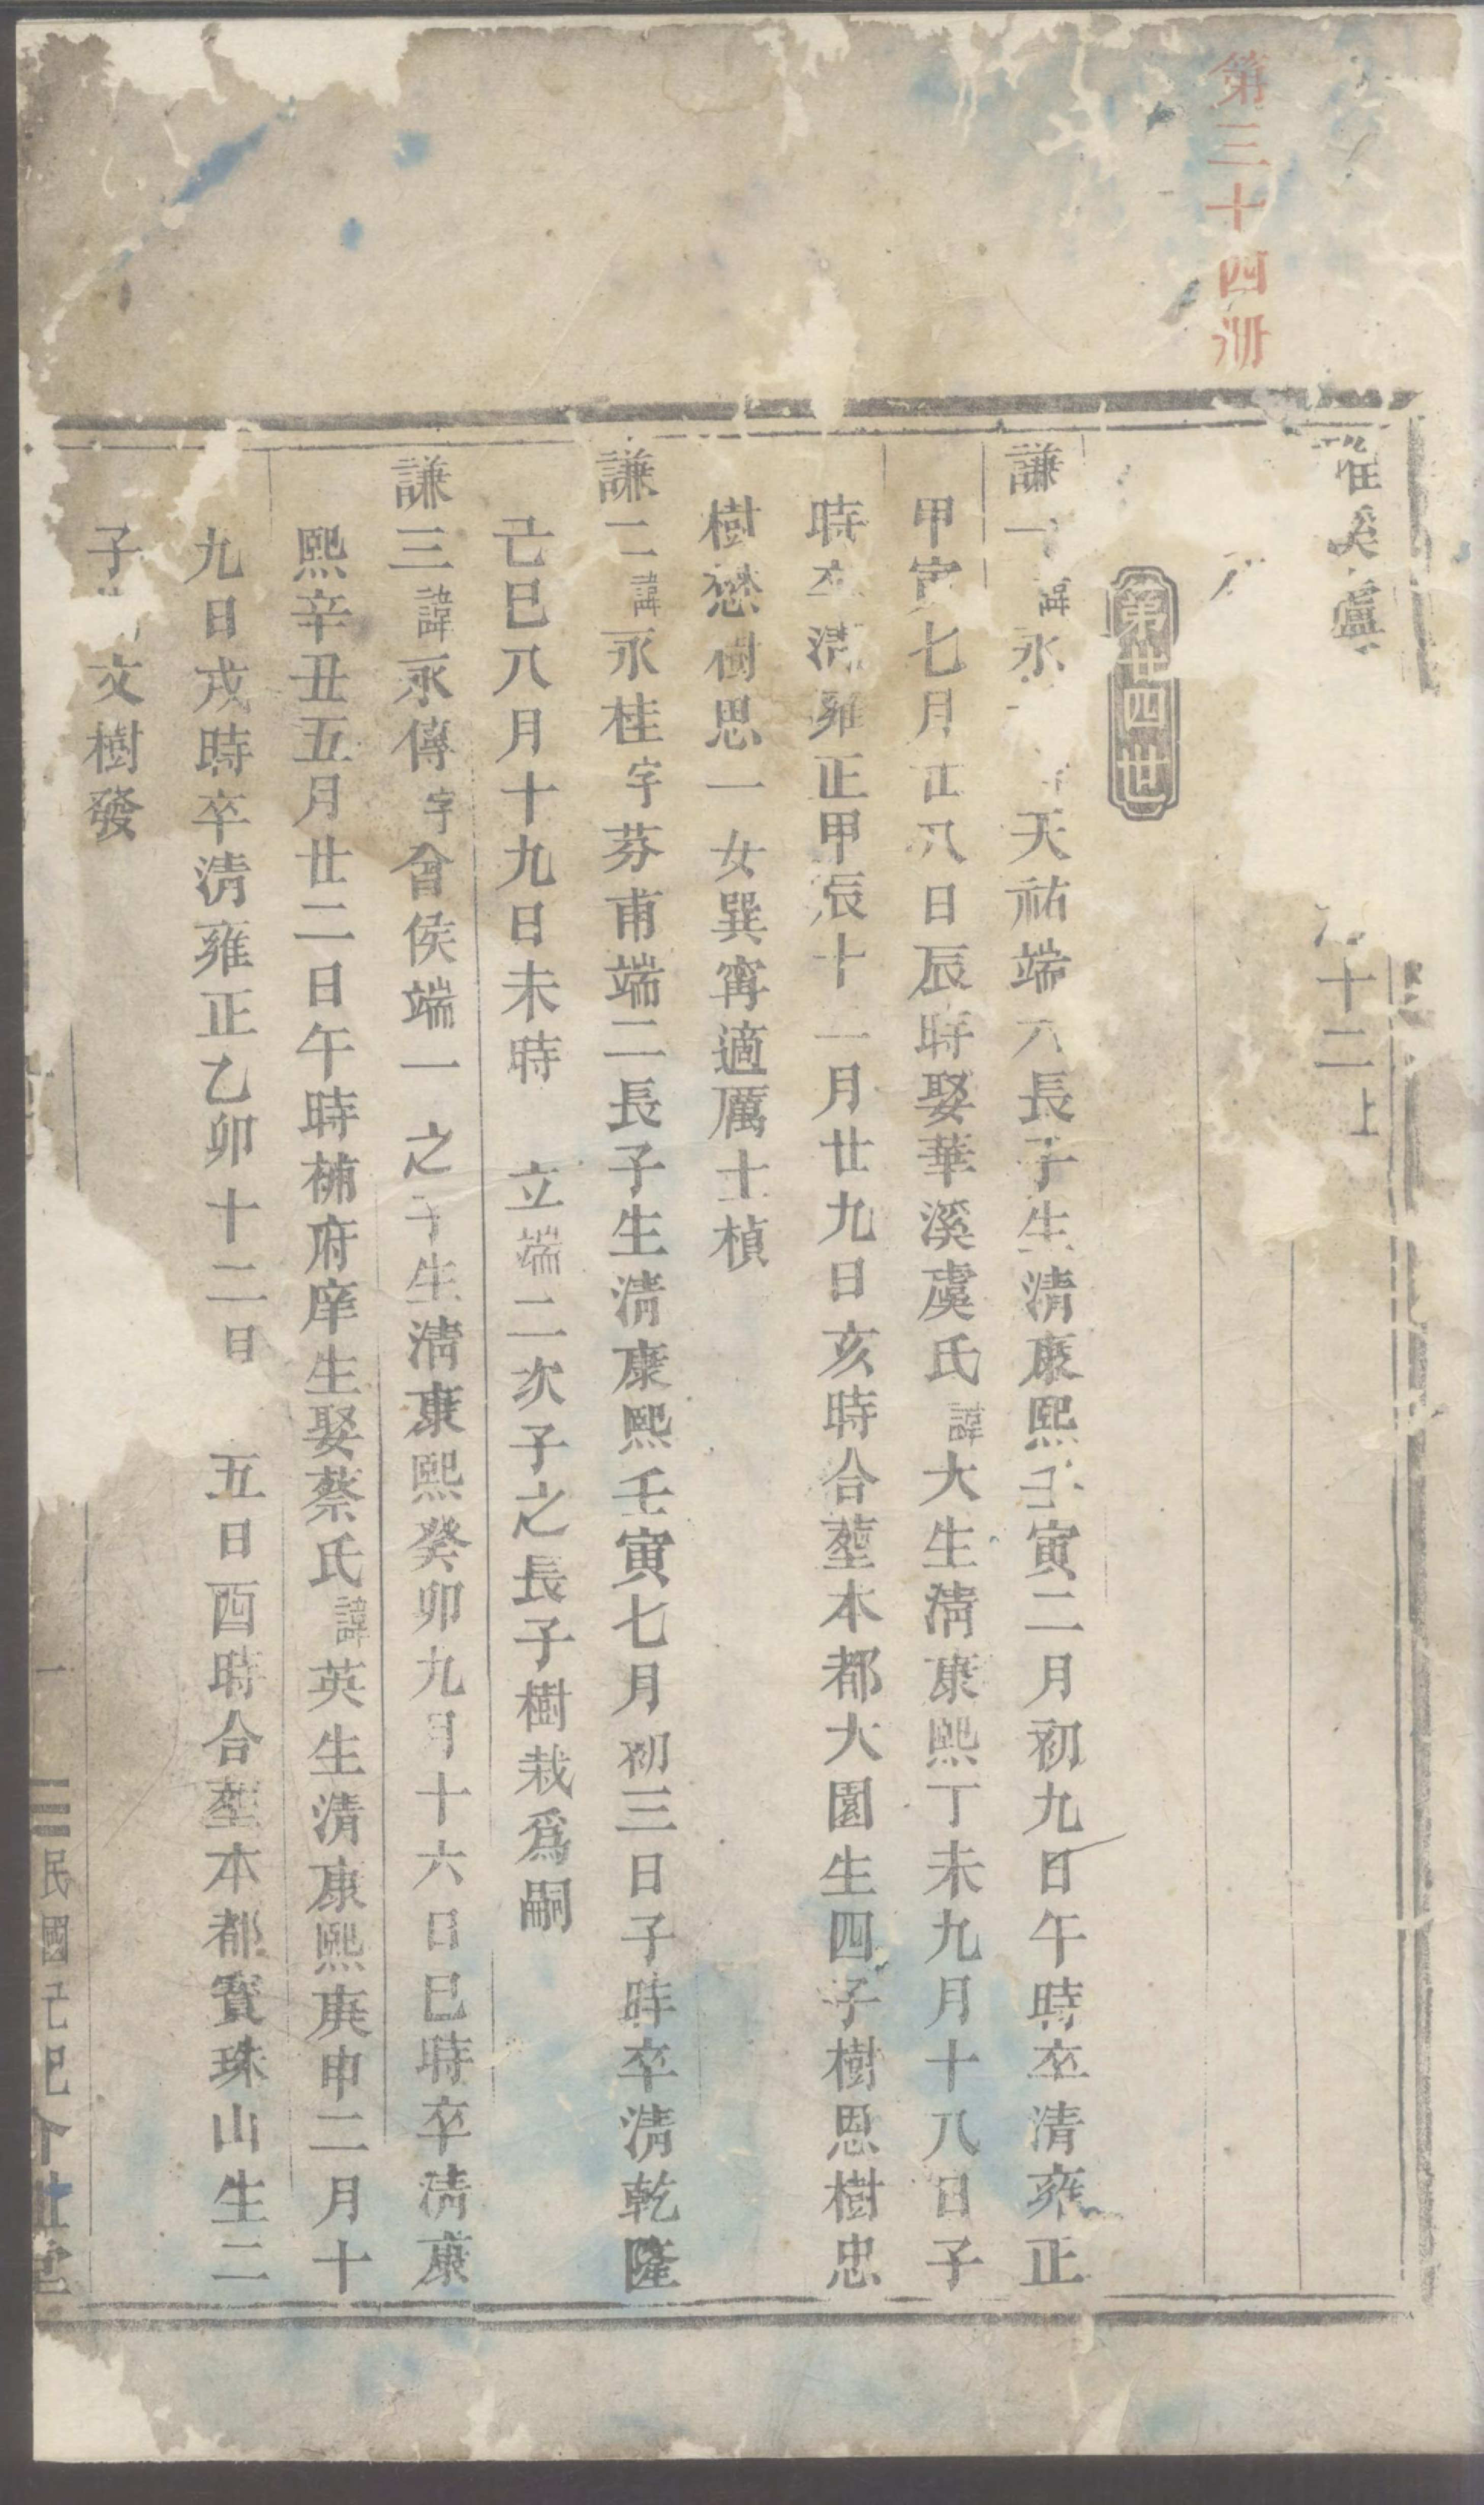 第三十四冊
雅溪盧
十二上
第廿四世
謙一諱永天祐端六長子生清康熙壬寅二月初九日午時卒清雍正
甲寅七月廿八日辰時娶華溪虞氏諱大生清康熙丁未九月十八日子
時卒清雍正甲辰十一月廿九日亥時合塟本都大園生四子樹恩樹忠
樹愻樹思一女巽甯適厲士楨
謙二諱永桂字芬甫端二長子生清康熙壬寅七月初三日子時卒清乾隆
己巳八月十九日未時立端二次子之長子樹栽爲嗣
謙三諱永傳字會侯端一之子生清康熙癸卯九月十六日巳時卒清康
熙辛丑五月廿二日午時補府庠生娶蔡氏諱英生清康熙庚申二月十
九日戌時卒清雍正乙卯十二日五日酉時合塟本都寳珠山生二
子文樹發
一
民國己巳